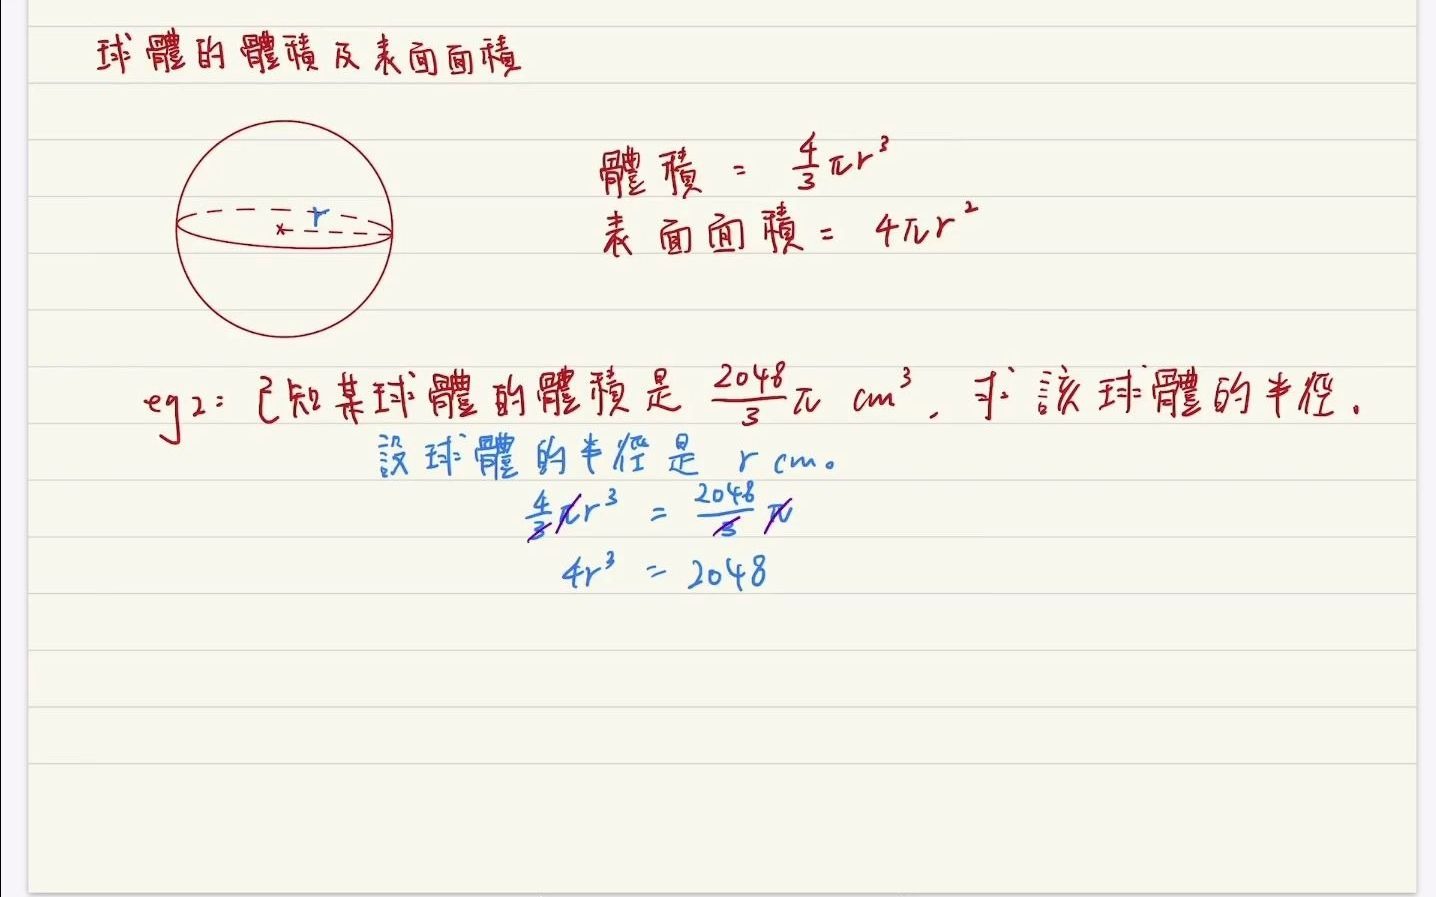 球體的體積及表面面積
r
體積 = 4/3 πr³
表面面積 = 4πr²
eg2: 已知某球體的體積是 2048/3 π cm³, 求該球體的半徑.
設球體的半徑是 r cm。
4/3 πr³ = 2048/3 π
4r³ = 2048